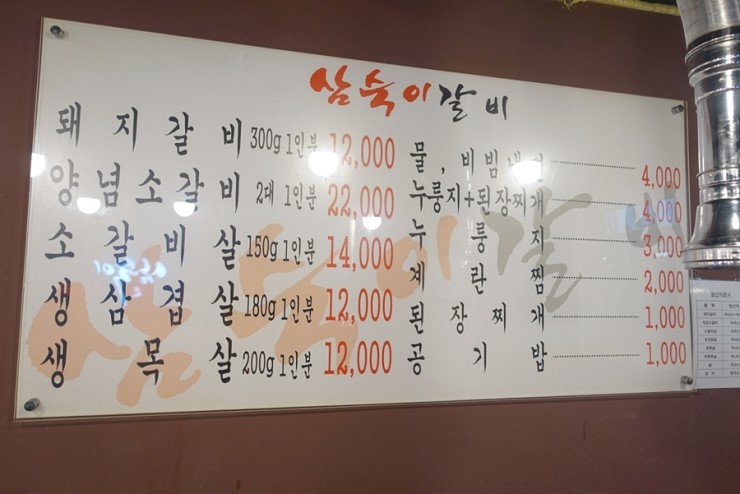 삼숙이갈비
돼지갈비 300g 1인분 12,000
양념소갈비 2대 1인분 22,000
소갈비살 150g 1인분 14,000
생삼겹살 180g 1인분 12,000
생목살 200g 1인분 12,000
물,비빔냉면 4,000
누룽지+된장찌개 4,000
누룽지 3,000
계란찜 2,000
된장찌개 1,000
공기밥 1,000